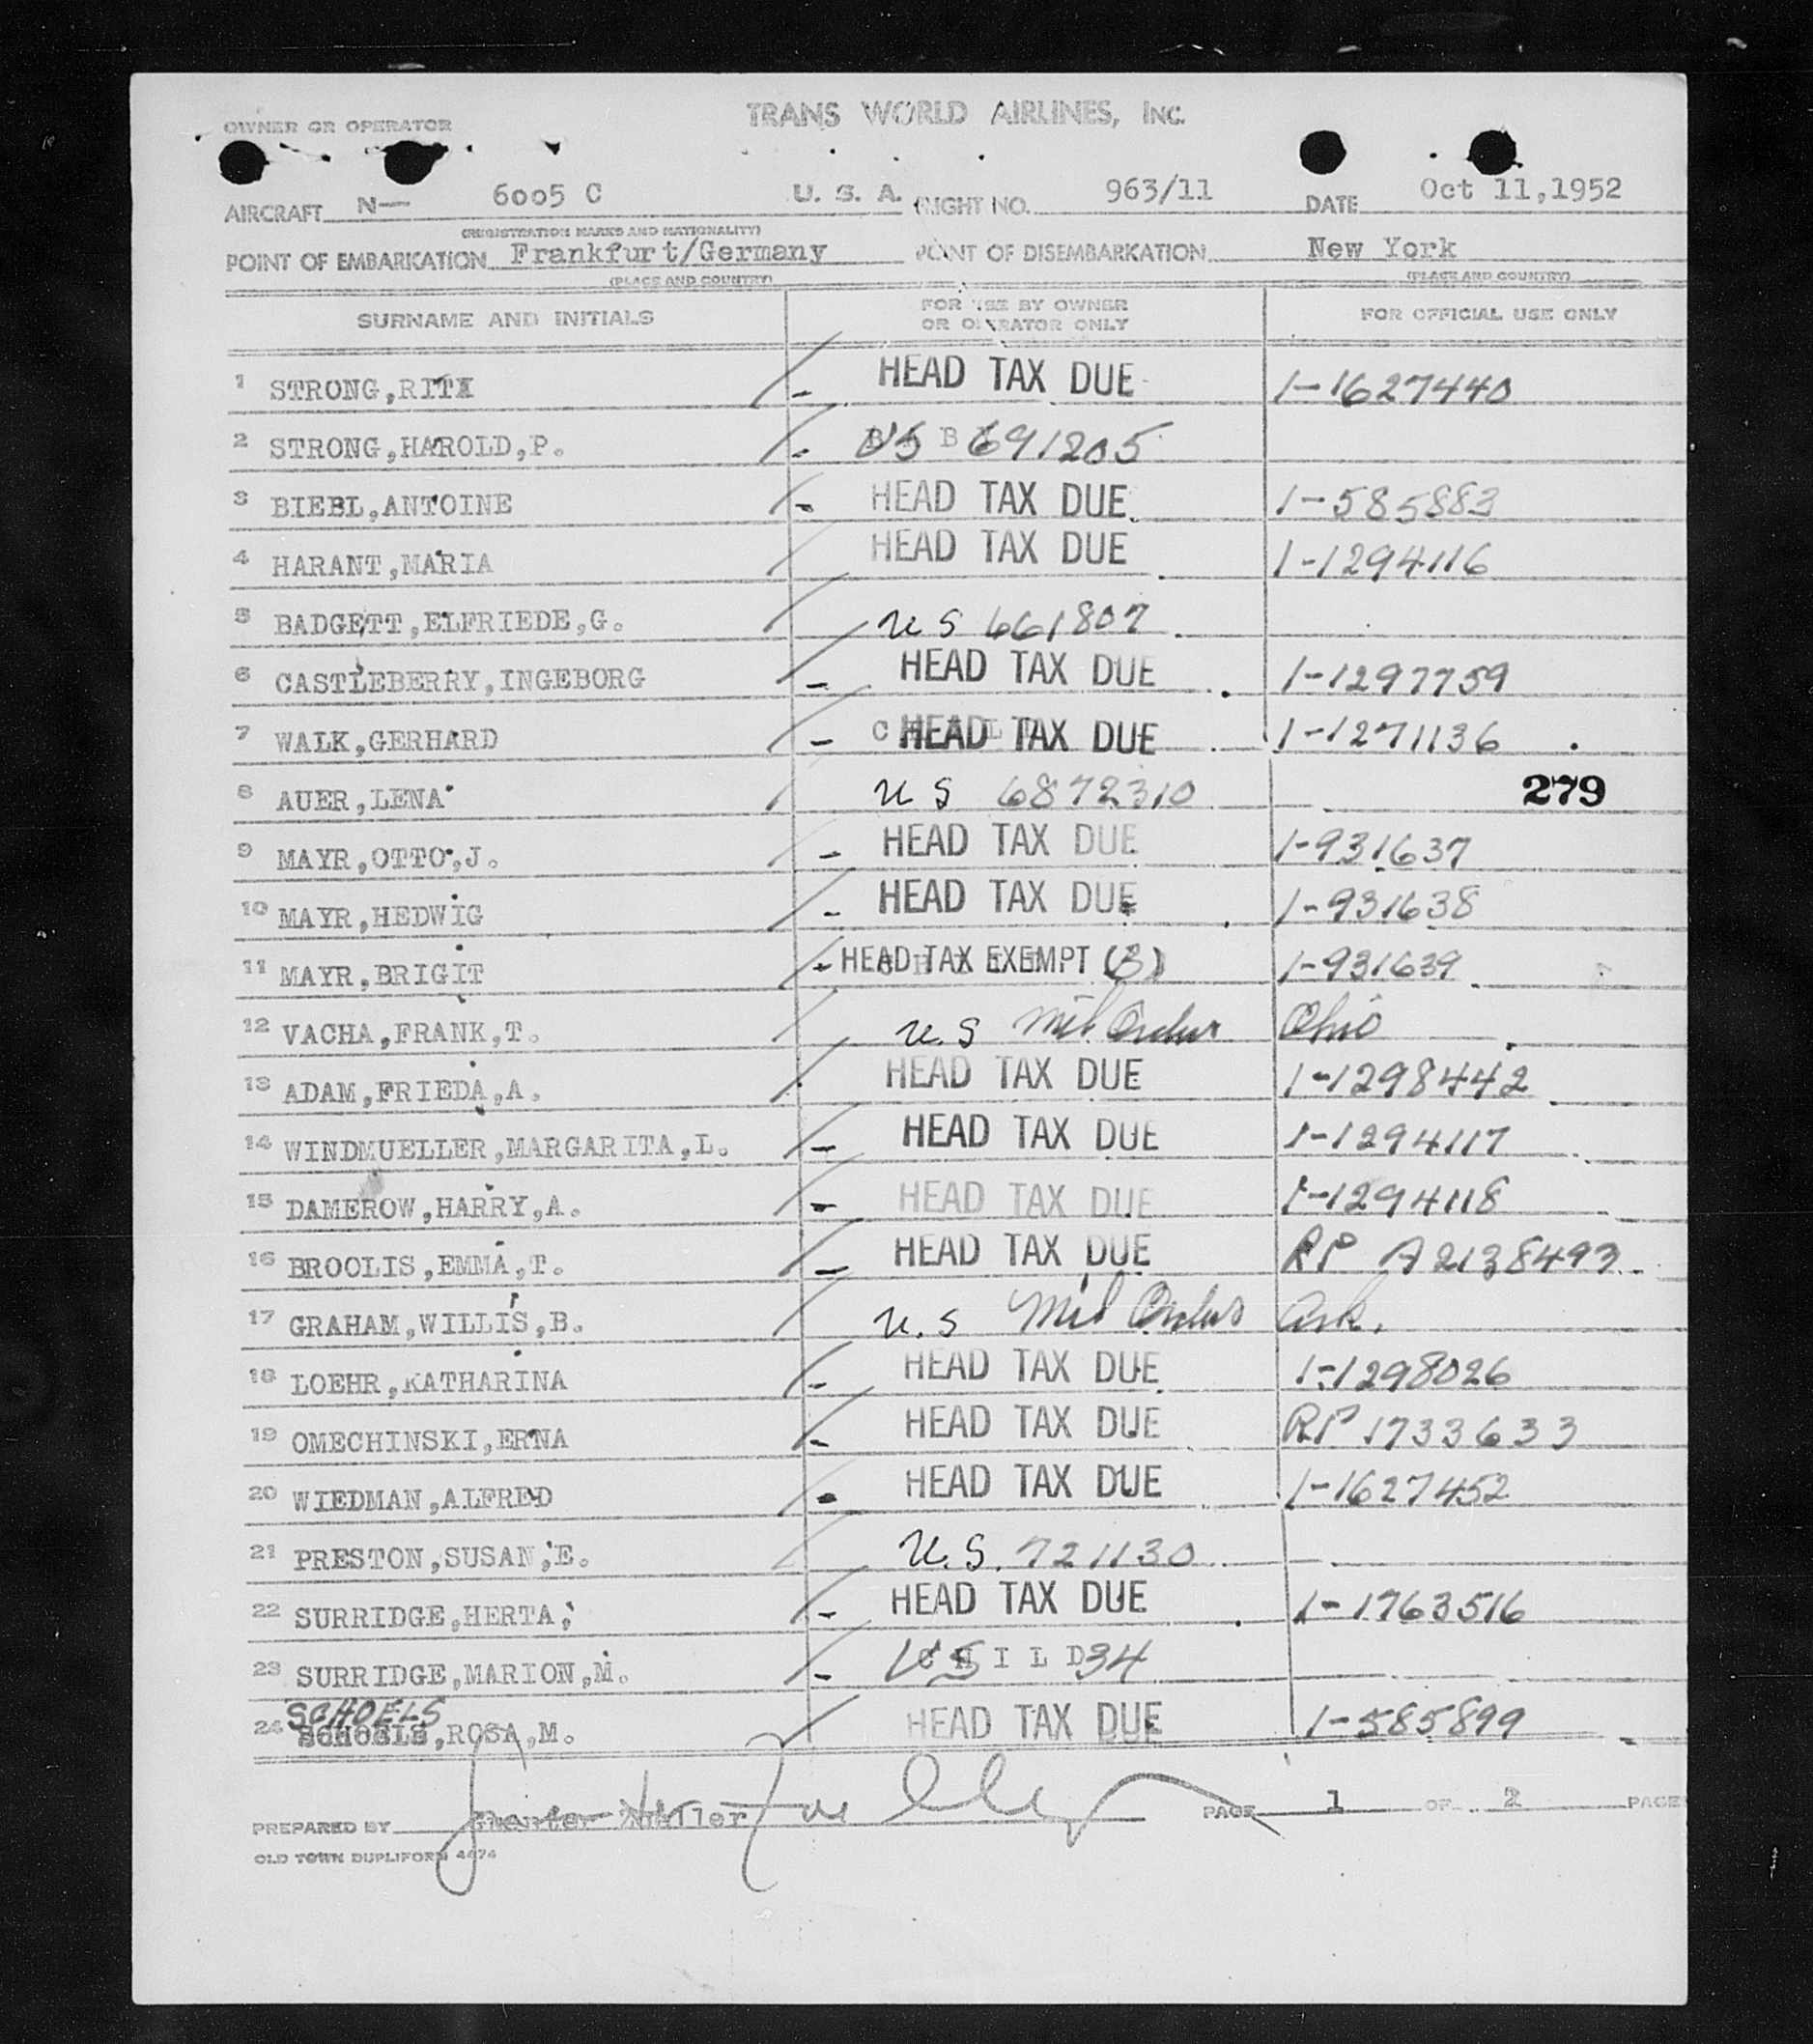 TRANS WORLD AIRLINES, INC.
OWNER OR OPERATOR
AIRCRAFT N— 6005 C U. S. A. FLIGHT NO. 963/11 DATE Oct 11,1952
(REGISTRATION MARKS AND NATIONALITY)
POINT OF EMBARKATION Frankfurt/Germany POINT OF DISEMBARKATION New York
(PLACE AND COUNTRY) (PLACE AND COUNTRY)
SURNAME AND INITIALS FOR USE BY OWNER OR OPERATOR ONLY FOR OFFICIAL USE ONLY
1 STRONG,RITA HEAD TAX DUE 1-1627440
2 STRONG,HAROLD,P. US 691205
3 BIEBL,ANTOINE HEAD TAX DUE 1-585883
4 HARANT,MARIA HEAD TAX DUE 1-1294116
5 BADGETT,ELFRIEDE,G. US 661807
6 CASTLEBERRY,INGEBORG HEAD TAX DUE 1-1297759
7 WALK,GERHARD HEAD TAX DUE 1-1271136
8 AUER,LENA US 6872310 279
9 MAYR,OTTO,J. HEAD TAX DUE 1-931637
10 MAYR,HEDWIG HEAD TAX DUE 1-931638
11 MAYR,BRIGIT HEAD TAX EXEMPT (3) 1-931639
12 VACHA,FRANK,T. U.S Mil Orders Ohio
13 ADAM,FRIEDA,A. HEAD TAX DUE 1-1298442
14 WINDMUELLER,MARGARITA,L. HEAD TAX DUE 1-1294117
15 DAMEROW,HARRY,A. HEAD TAX DUE 1-1294118
16 BROOLIS,EMMA,T. HEAD TAX DUE RP A2138493
17 GRAHAM,WILLIS,B. U.S Mil Orders Ark.
18 LOEHR,KATHARINA HEAD TAX DUE 1-1298026
19 OMECHINSKI,ERNA HEAD TAX DUE RP 1733633
20 WIEDMAN,ALFRED HEAD TAX DUE 1-1627452
21 PRESTON,SUSAN,E. U.S. 721130
22 SURRIDGE,HERTA, HEAD TAX DUE 1-1763516
23 SURRIDGE,MARION,M. US CHILD 34
SCHOELS
24 SCHOELS,ROSA,M. HEAD TAX DUE 1-585899
PREPARED BY PAGE 1 OF 2 PAGE
OLD TOWN DUPLIFORM 4474